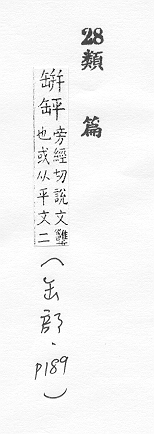 28類篇
缾
旁經切說文罋
也或从平文二
(缶部.P189)